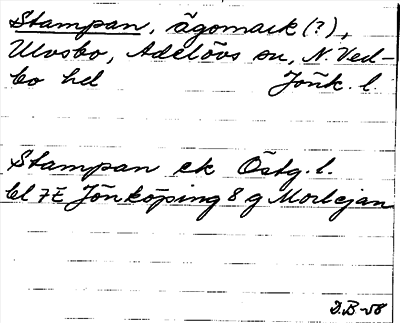 Stampan, ägomark (?),
Ulvsbo, Adelövs sn, N. Ved-
bo hd Jönk. l.
Stampan ek Östg. l.
bl 7E Jönköping 8 g Morlejan
D.B-58